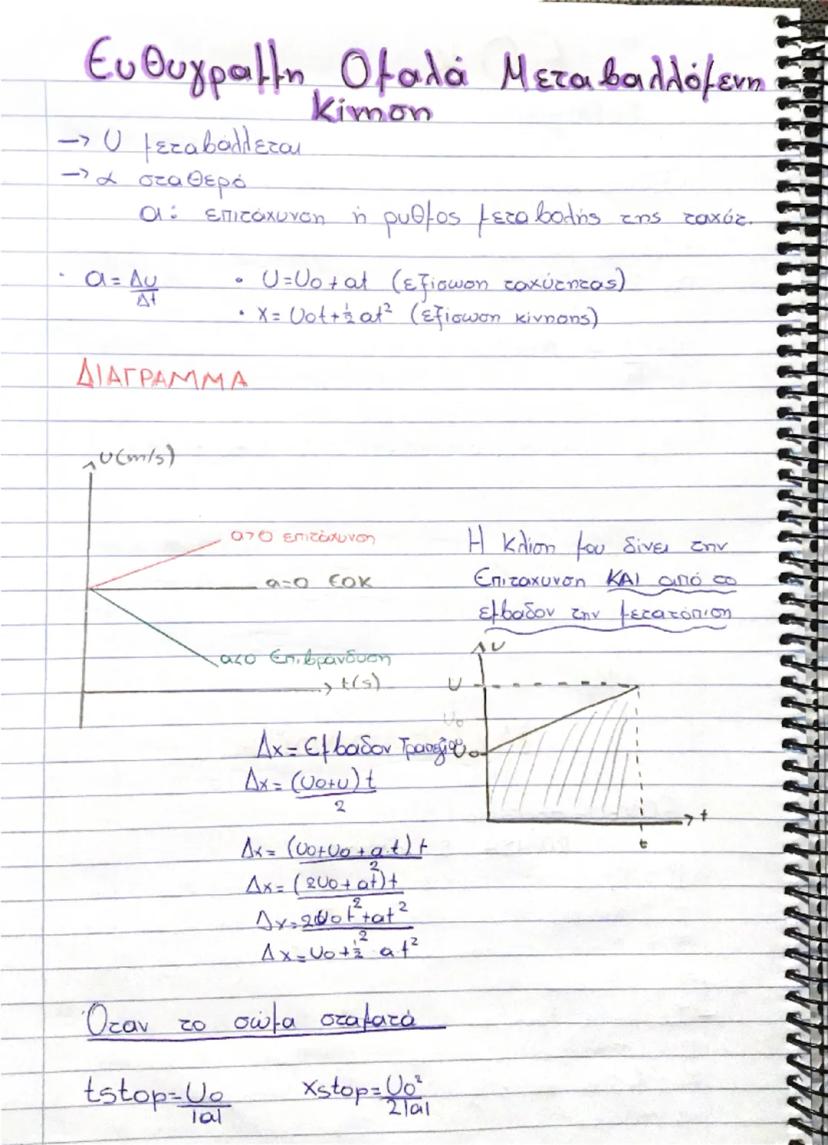 Ευθυγραμμη Ομαλά Μεταβαλλόμενη
Κίνηση
→ υ μεταβάλλεται
→ α σταθερό
α: επιτάχυνση ή ρυθμος μεταβολής της ταχύτ.
· α = Δυ/Δt • υ=υο+αt (εξίσωση ταχύτητας)
• x = υοt+½αt² (εξίσωση κίνησης)
ΔΙΑΓΡΑΜΜΑ
υ(m/s)
α>0 επιτάχυνση
α=0 ΕΟΚ
α<0 Επιβράνδυση
t(s)
Η κλίση μου δίνει την
Επιταχυνση ΚΑΙ από το
εμβαδον την μετατόπιση
υ
υ
υο
υο
t
t
Δx = Εμβαδον Τραπεζίου
Δx = (υο+υ)t/2
Δx = (υο+υο+αt)t/2
Δx = (2υο+αt)t/2
Δx = 2υοt+αt²/2
Δx = υο+½ αt²
Όταν το σώμα σταματά
tstop=υο/|α| xstop=υο²/2|α|